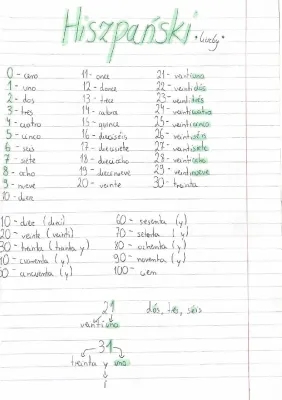 Hiszpański •liczby•
0 - cero
1 - uno
2 - dos
3 - tres
4 - cuatro
5 - cinco
6 - seis
7 - siete
8 - ocho
9 - nueve
10 - diez
11 - once
12 - doce
13 - trece
14 -
15 - quince
16 - dieciséis
17 - diecisiete
18 - dieciocho
19 - diecinueve
20 - veinte
21 - veintiuno
22 - veintidós
23 - veintitrés
24 - veinticuatro
25 - veinticinco
26 - veintiséis
27 - veintisiete
28 - veintiocho
29 - veintinueve
30 - treinta
10 - diez (dieci)
20 - veinte (veinti)
30 - treinta (treinta y)
40 - cuarenta (y)
50 - cincuenta (y)
60 - sesenta (y)
70 - setenta (y)
80 - ochenta (y)
90 - noventa (y)
100 - cien
21
veintiuno
dós, trés, séis
31
treinta y uno
i